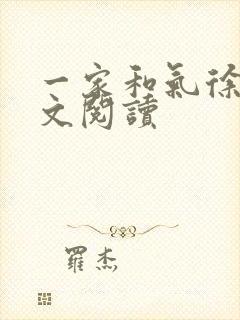 一家和氣徐
文閱讀
羅杰